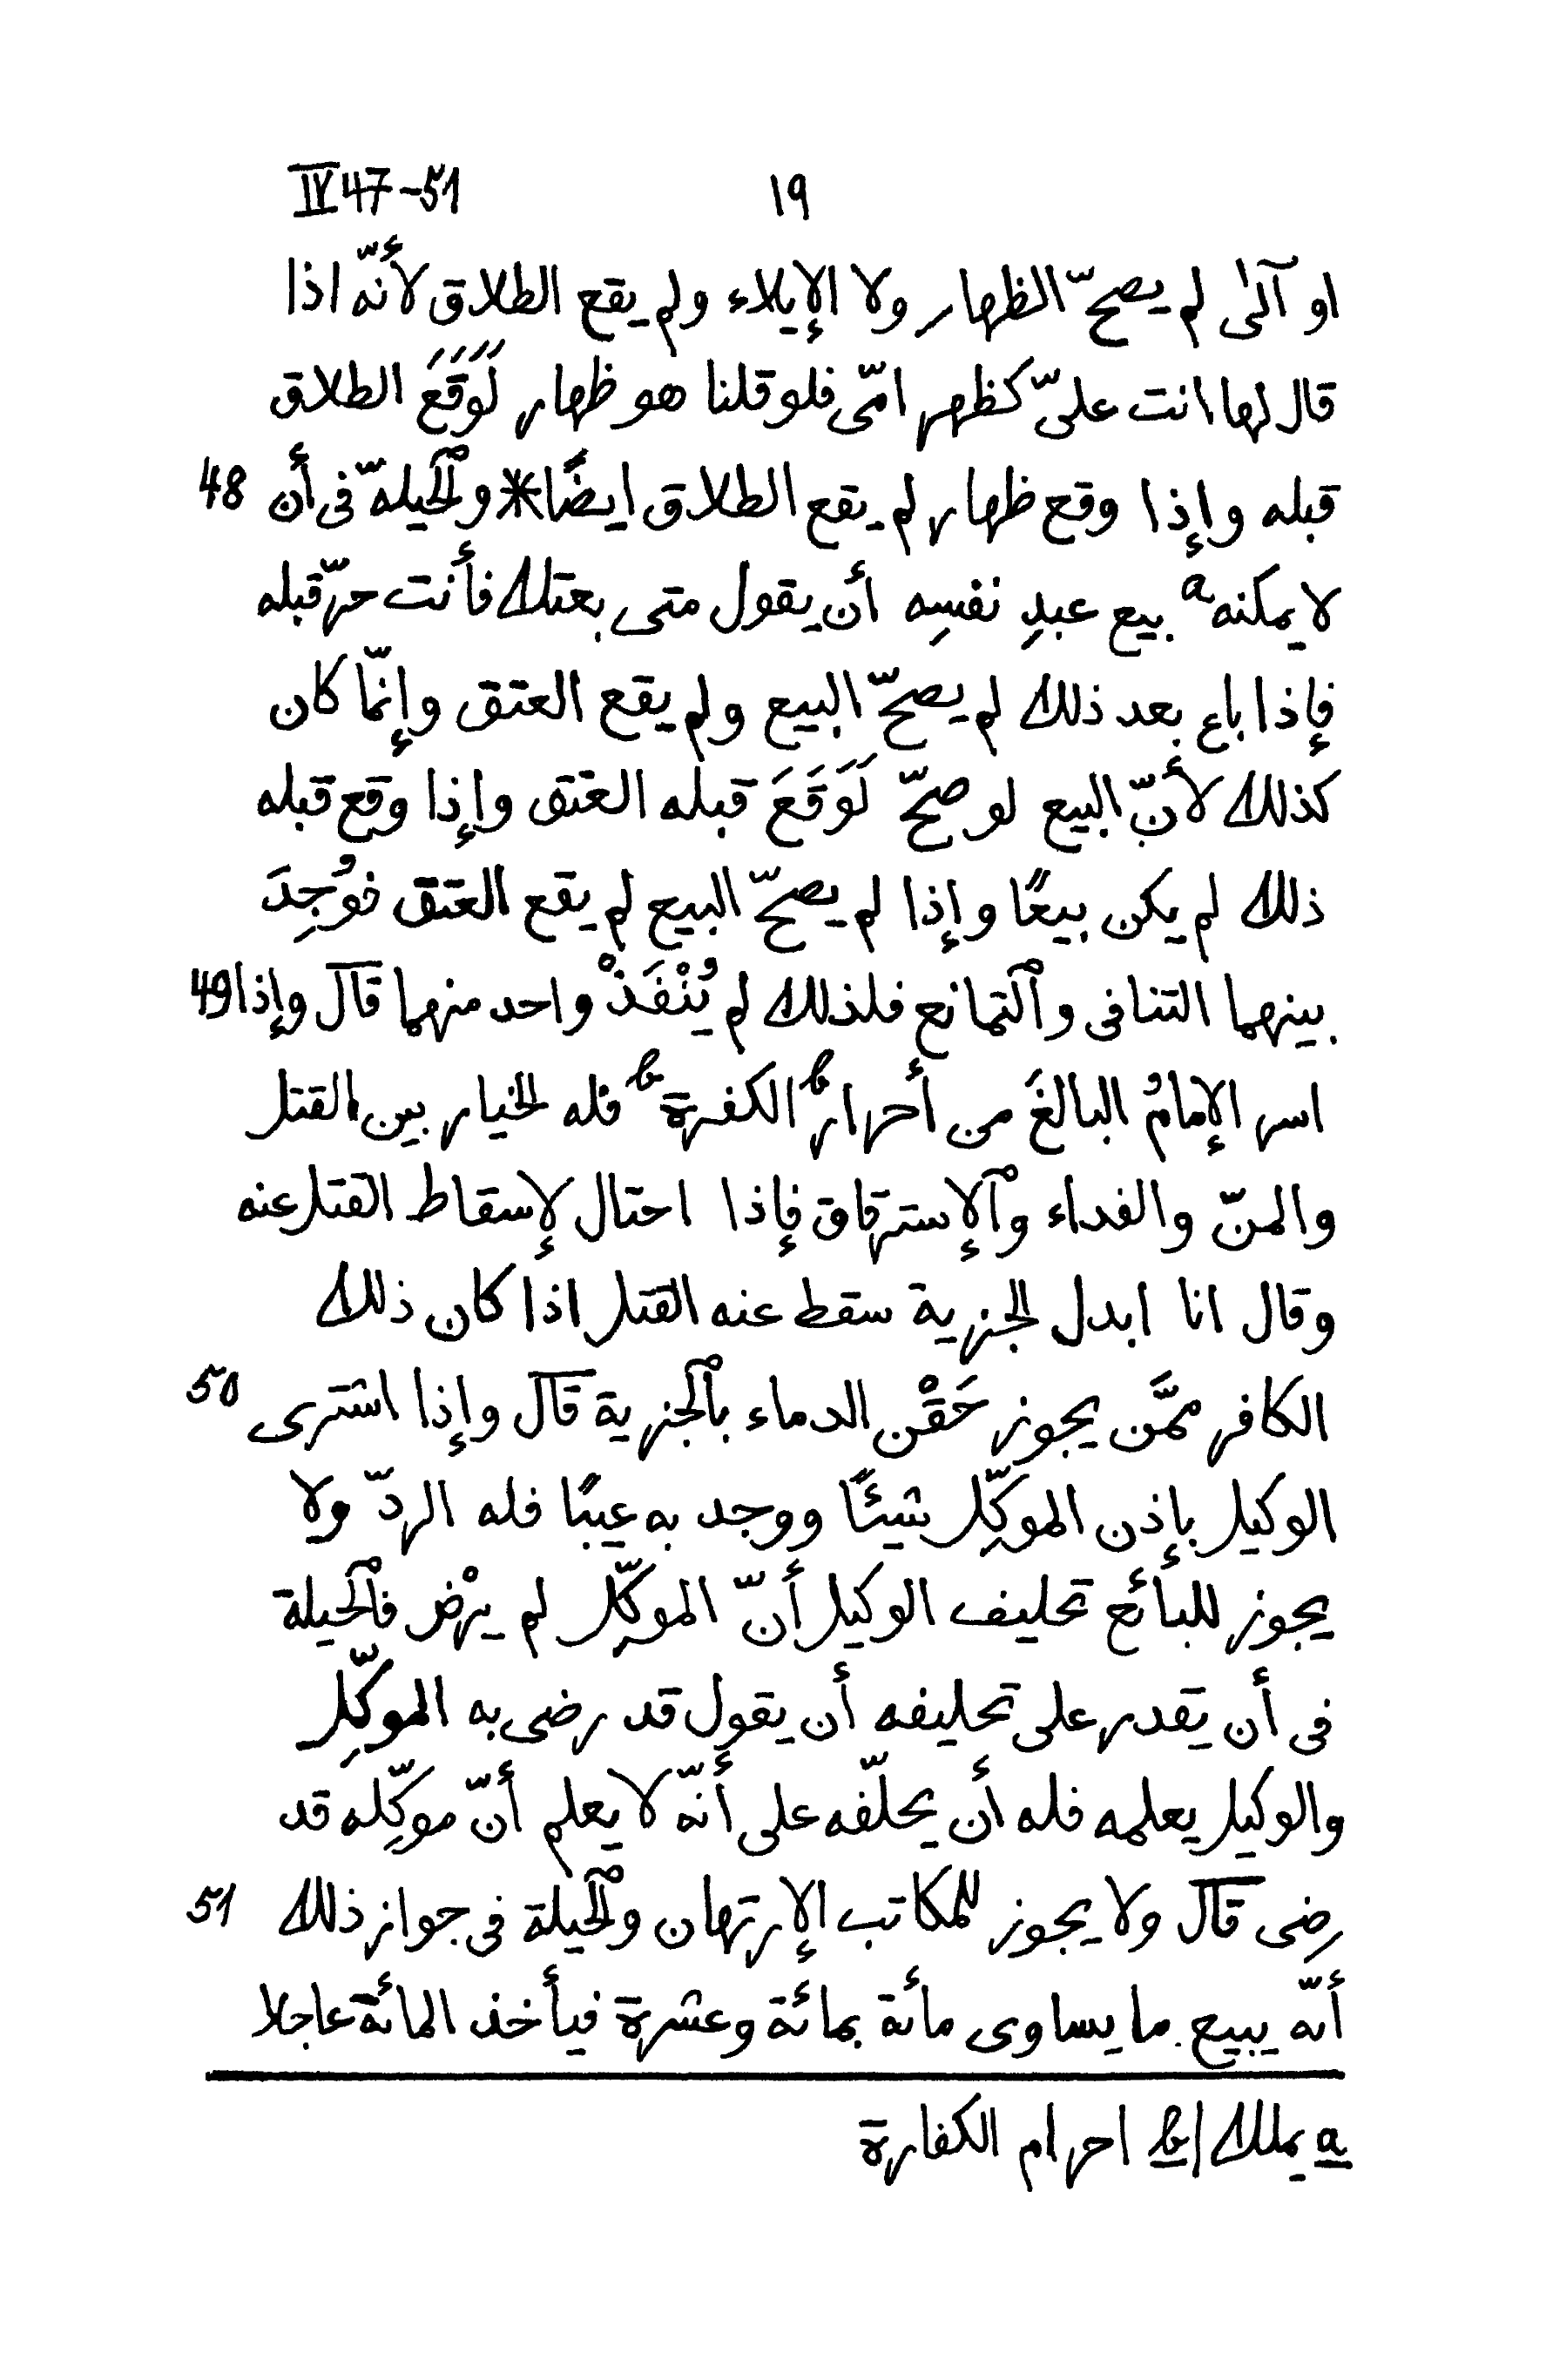 IV 47-51 ١٩
او آلىٰ لم يصحّ الظهار ولا الإيلاء ولم يقع الطلاق لأنّه اذا
قال لها انت علىّ كظهر امّى فلو قلنا هو ظهار لَوَقَعَ الطلاق
قبله وإذا وقع ظهار لم يقع الطلاق ايضًا * وٱلحيلة فى أن 48
لا يمكنه a بيع عبدِ نفسِه أن يقول متى بعتك فأنت حرّ قبله
فإذا باع بعد ذلك لم يصحّ البيع ولم يقع العتق وإنّما كان
كذلك لأنّ البيع لو صحّ لَوَقَعَ قبله العتق وإذا وقع قبله
ذلك لم يكن بيعًا وإذا لم يصحّ البيع لم يقع العتق فوُجِدَ
بينهما التنافى وٱلتمانع فلذلك لم يُنْفَذْ واحد منهما قال وإذا 49
اسر الإمامُ البالغَ من أحرار b الكفرة b فله الخيار بين القتل
والمنّ والفداء وٱلإسترقاق فإذا احتال لإسقاط القتل عنه
وقال انا ابدل الجزية سقط عنه القتل اذا كان ذلك
الكافر ممَّن يجوز حَقْن الدماء بٱلجزية قال وإذا اشترى 50
الوكيل بإذن الموكِّل شيئًا ووجد به عيبًا فله الردّ ولا
يجوز للبائع تحليف الوكيل أنّ الموكِّل لم يرْض فٱلحيلة
فى أن يقدر على تحليفه أن يقول قد رضى به الموكِّل
والوكيل يعلمه فله أن يحلّفه على أنّه لا يعلم أنّ موكِّله قد
رضى قال ولا يجوز للمكاتب الإرتهان وٱلحيلة فى جواز ذلك 51
أنّه يبيع ما يساوى مائة بمائة وعشرة فيأخذ المائة عاجلا
a يملك | b احرام الكفارة